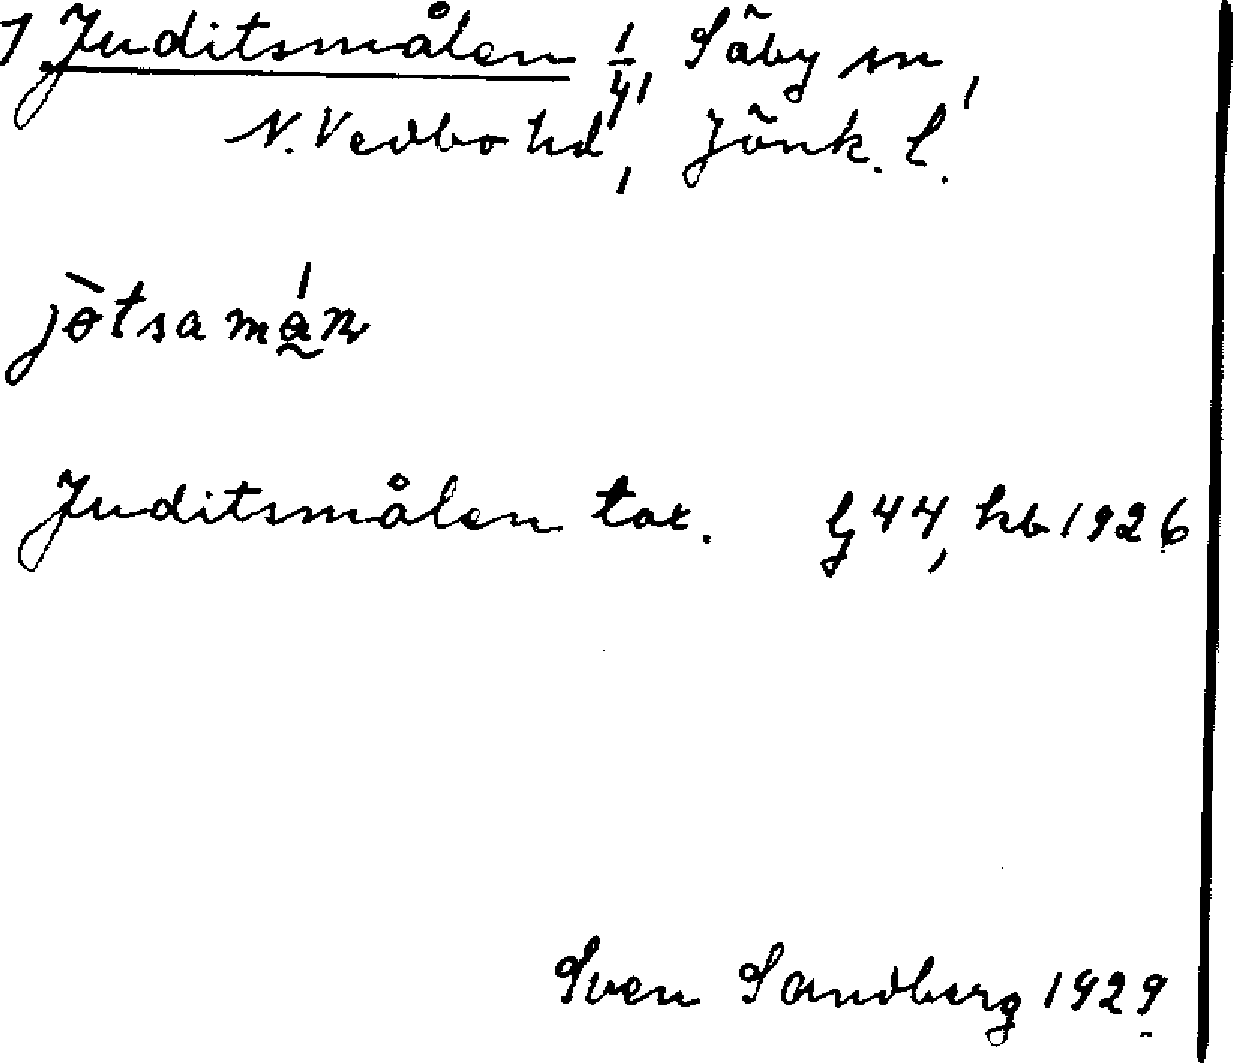 1 Juditsmålen 1/4, Säby sn,
N. Vedbo hd, Jönk. l.
jètsamán
Juditsmålen tax. lj 44, hb 1926
Sven Sandberg 1929